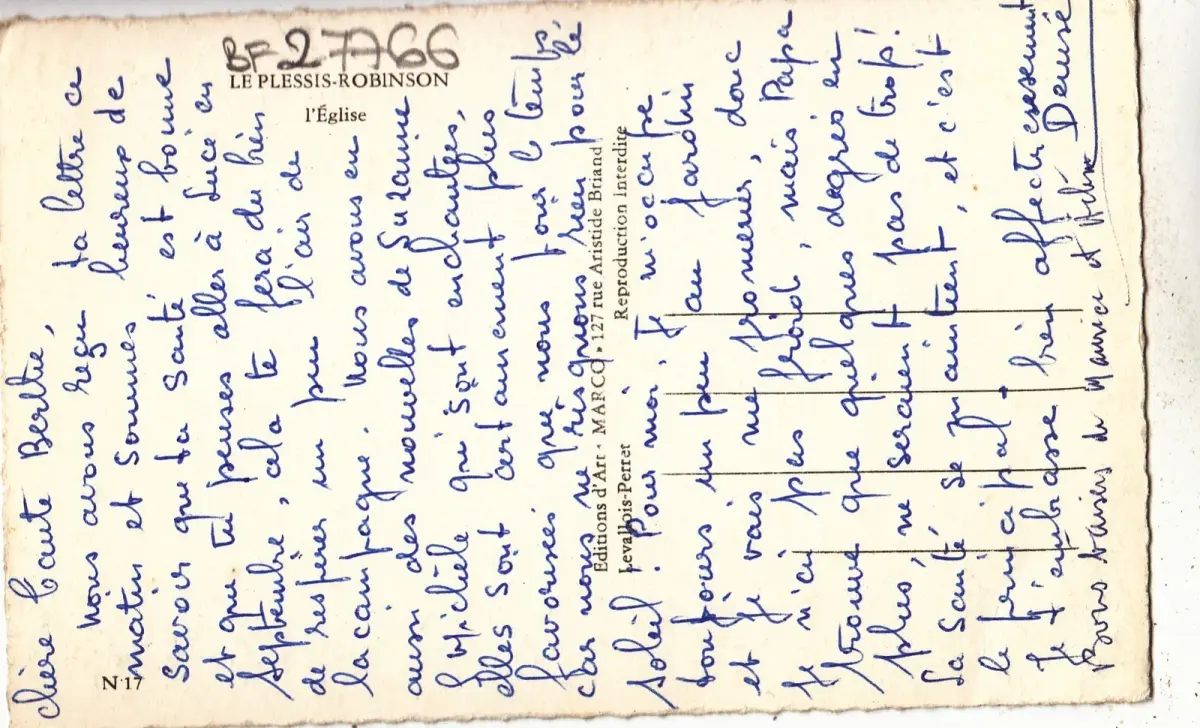 BF 27766
LE PLESSIS-ROBINSON
l'Église
N 17
Editions d'Art • MARCO • 127 rue Aristide Briand
Levallois-Perret Reproduction Interdite
chère tante Berthe,
Nous avons reçu ta lettre ce
matin et sommes heureux de
savoir que ta santé est bonne
et que tu penses aller à Lucé en
septembre, cela te fera du bien
de respirer un peu l'air de
la campagne. Nous avons eu
aussi des nouvelles de Suzanne
et Michèle qui sont enchantées,
elles sont certainement plus
favorisées que nous pour le temps,
car nous ne risquons rien pour le
soleil. Pour moi, je m'occupe
toujours un peu au jardin
et je vais me promener, donc
je n'ai pas froid, mais Papa
trouve que quelques degrés en
plus, ne seraient pas de trop!
La santé se maintient, et c'est
le principal.
Je t'embrasse bien affectueusement
Denise
Bons baisers de Maurice et